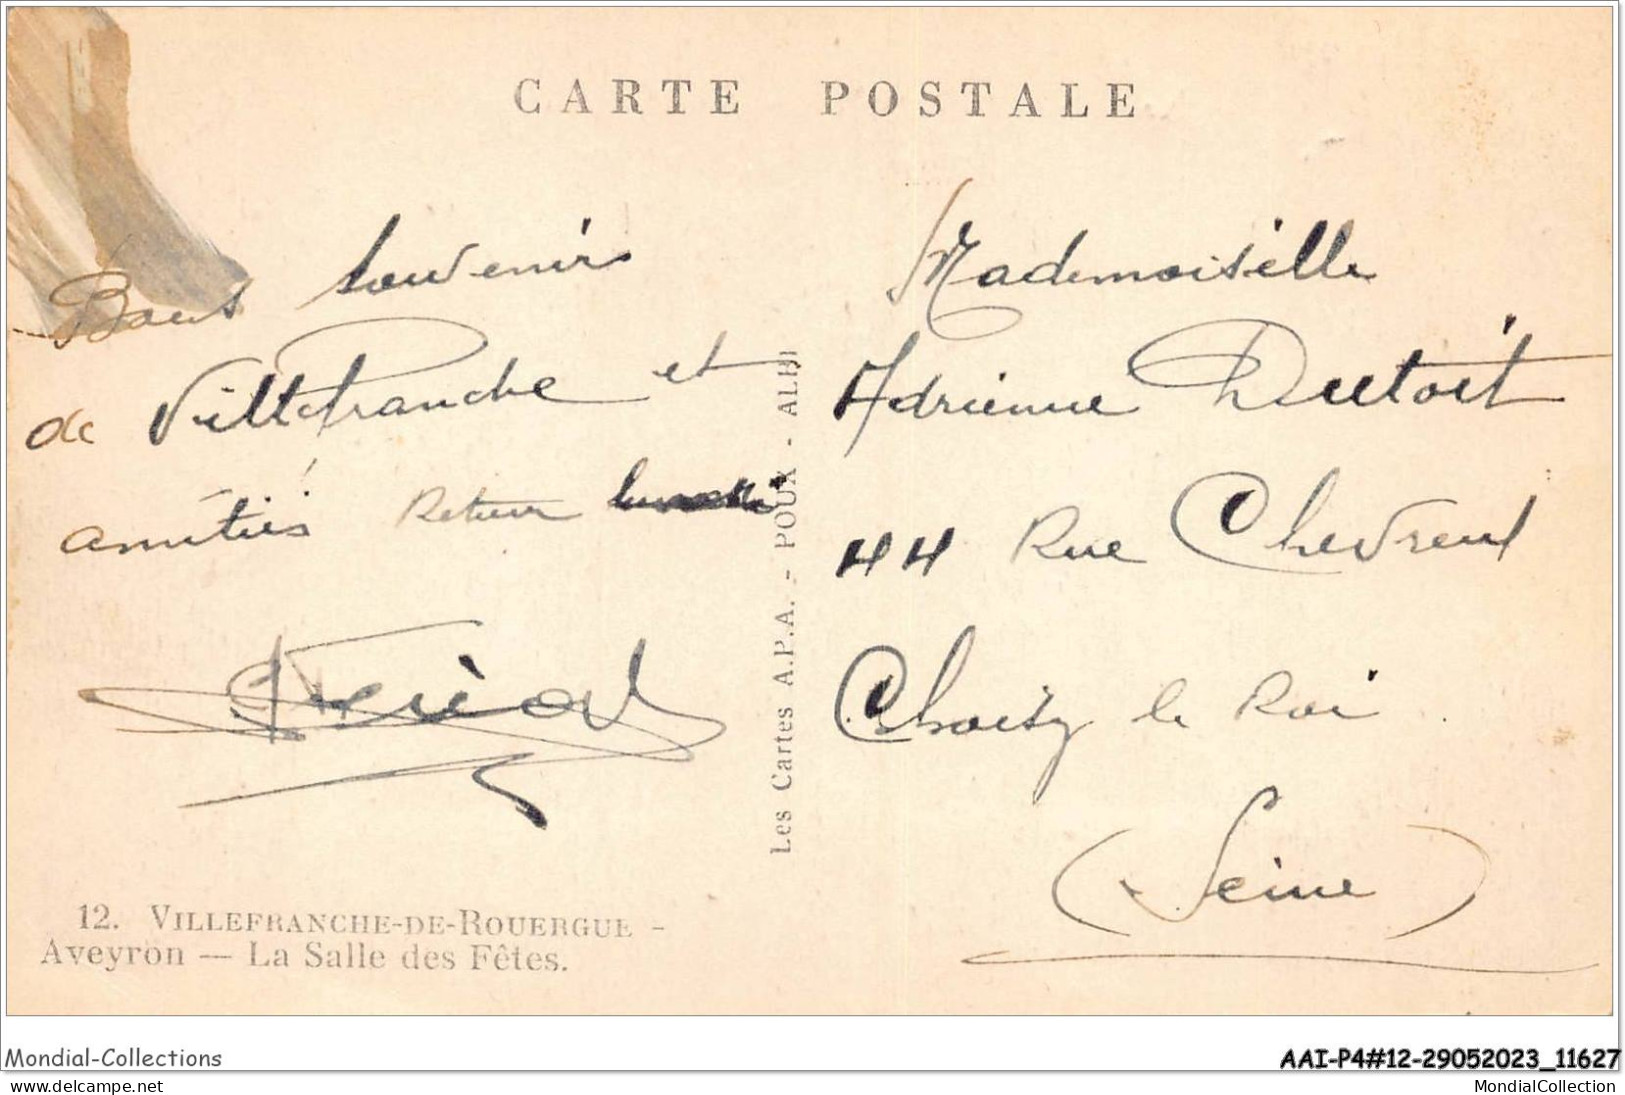 CARTE POSTALE
Bons souvenirs
de Villefranche et
amitiés Retour
Mademoiselle
Adrienne Dutoit
44 Rue Chevreul
Choisy le Roi
(Seine)
Les Cartes A.P.A. - POUX - ALBI
12. VILLEFRANCHE-DE-ROUERGUE -
Aveyron — La Salle des Fêtes.
Mondial-Collections
AAI-P4#12-29052023_11627
www.delcampe.net
MondialCollection